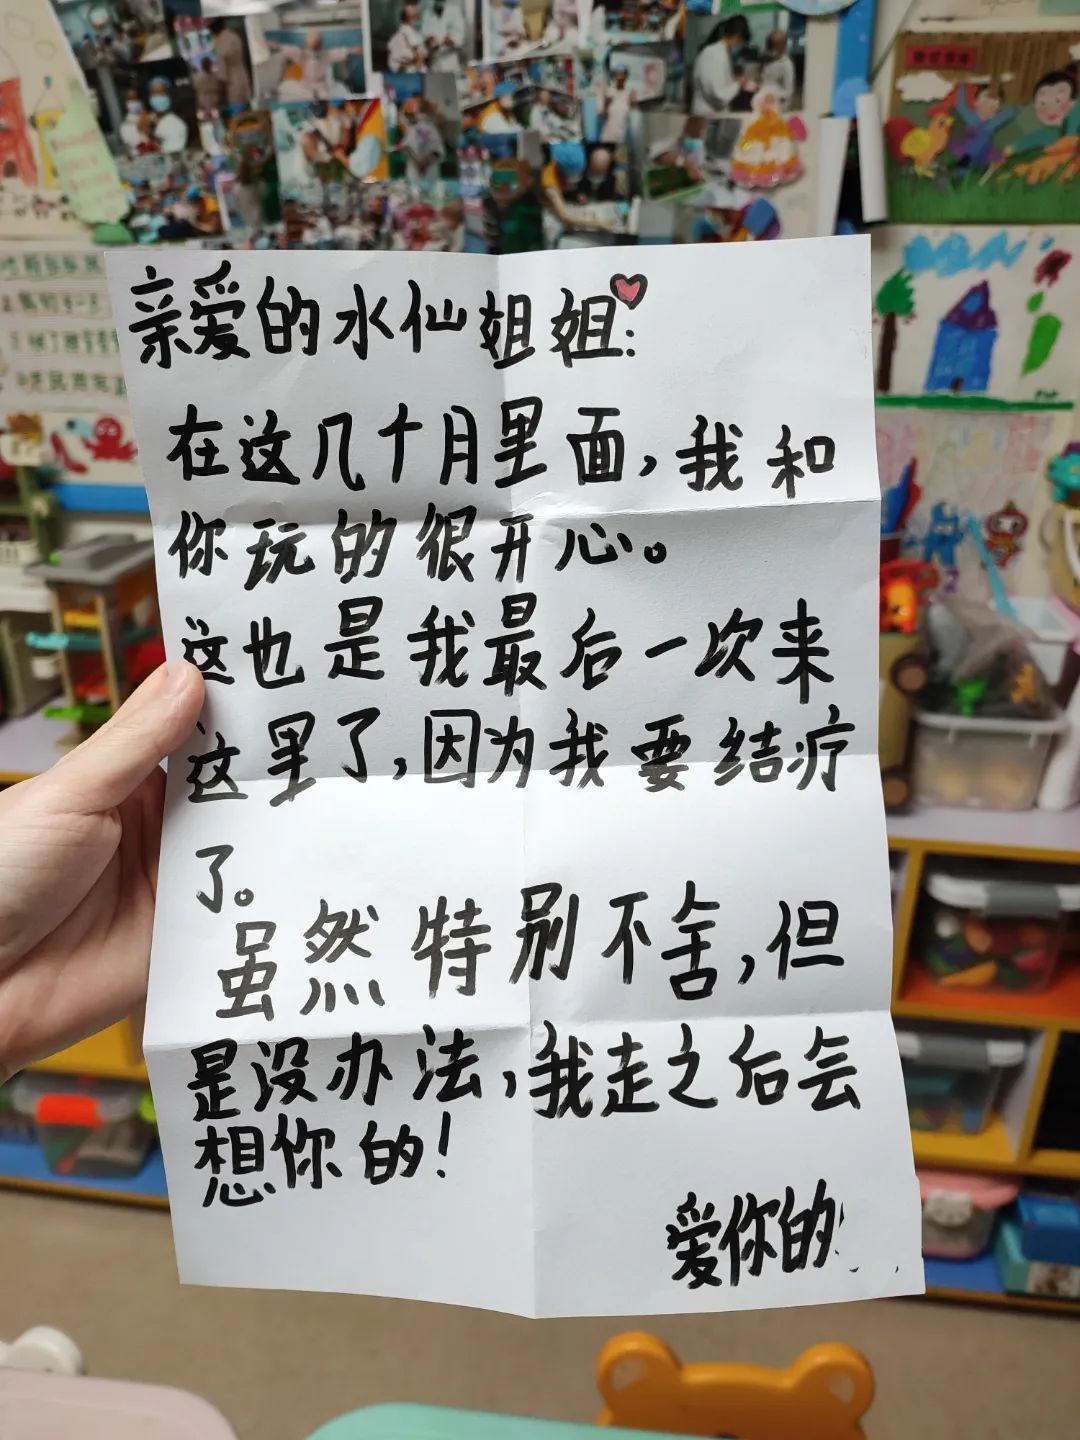 亲爱的水仙姐姐:
在这几十月里面,我和
你玩的很开心。
这也是我最后一次来
这里了,因为我要结疗
了。
虽然特别不舍,但
是没办法,我走之后会
想你的!
爱你的